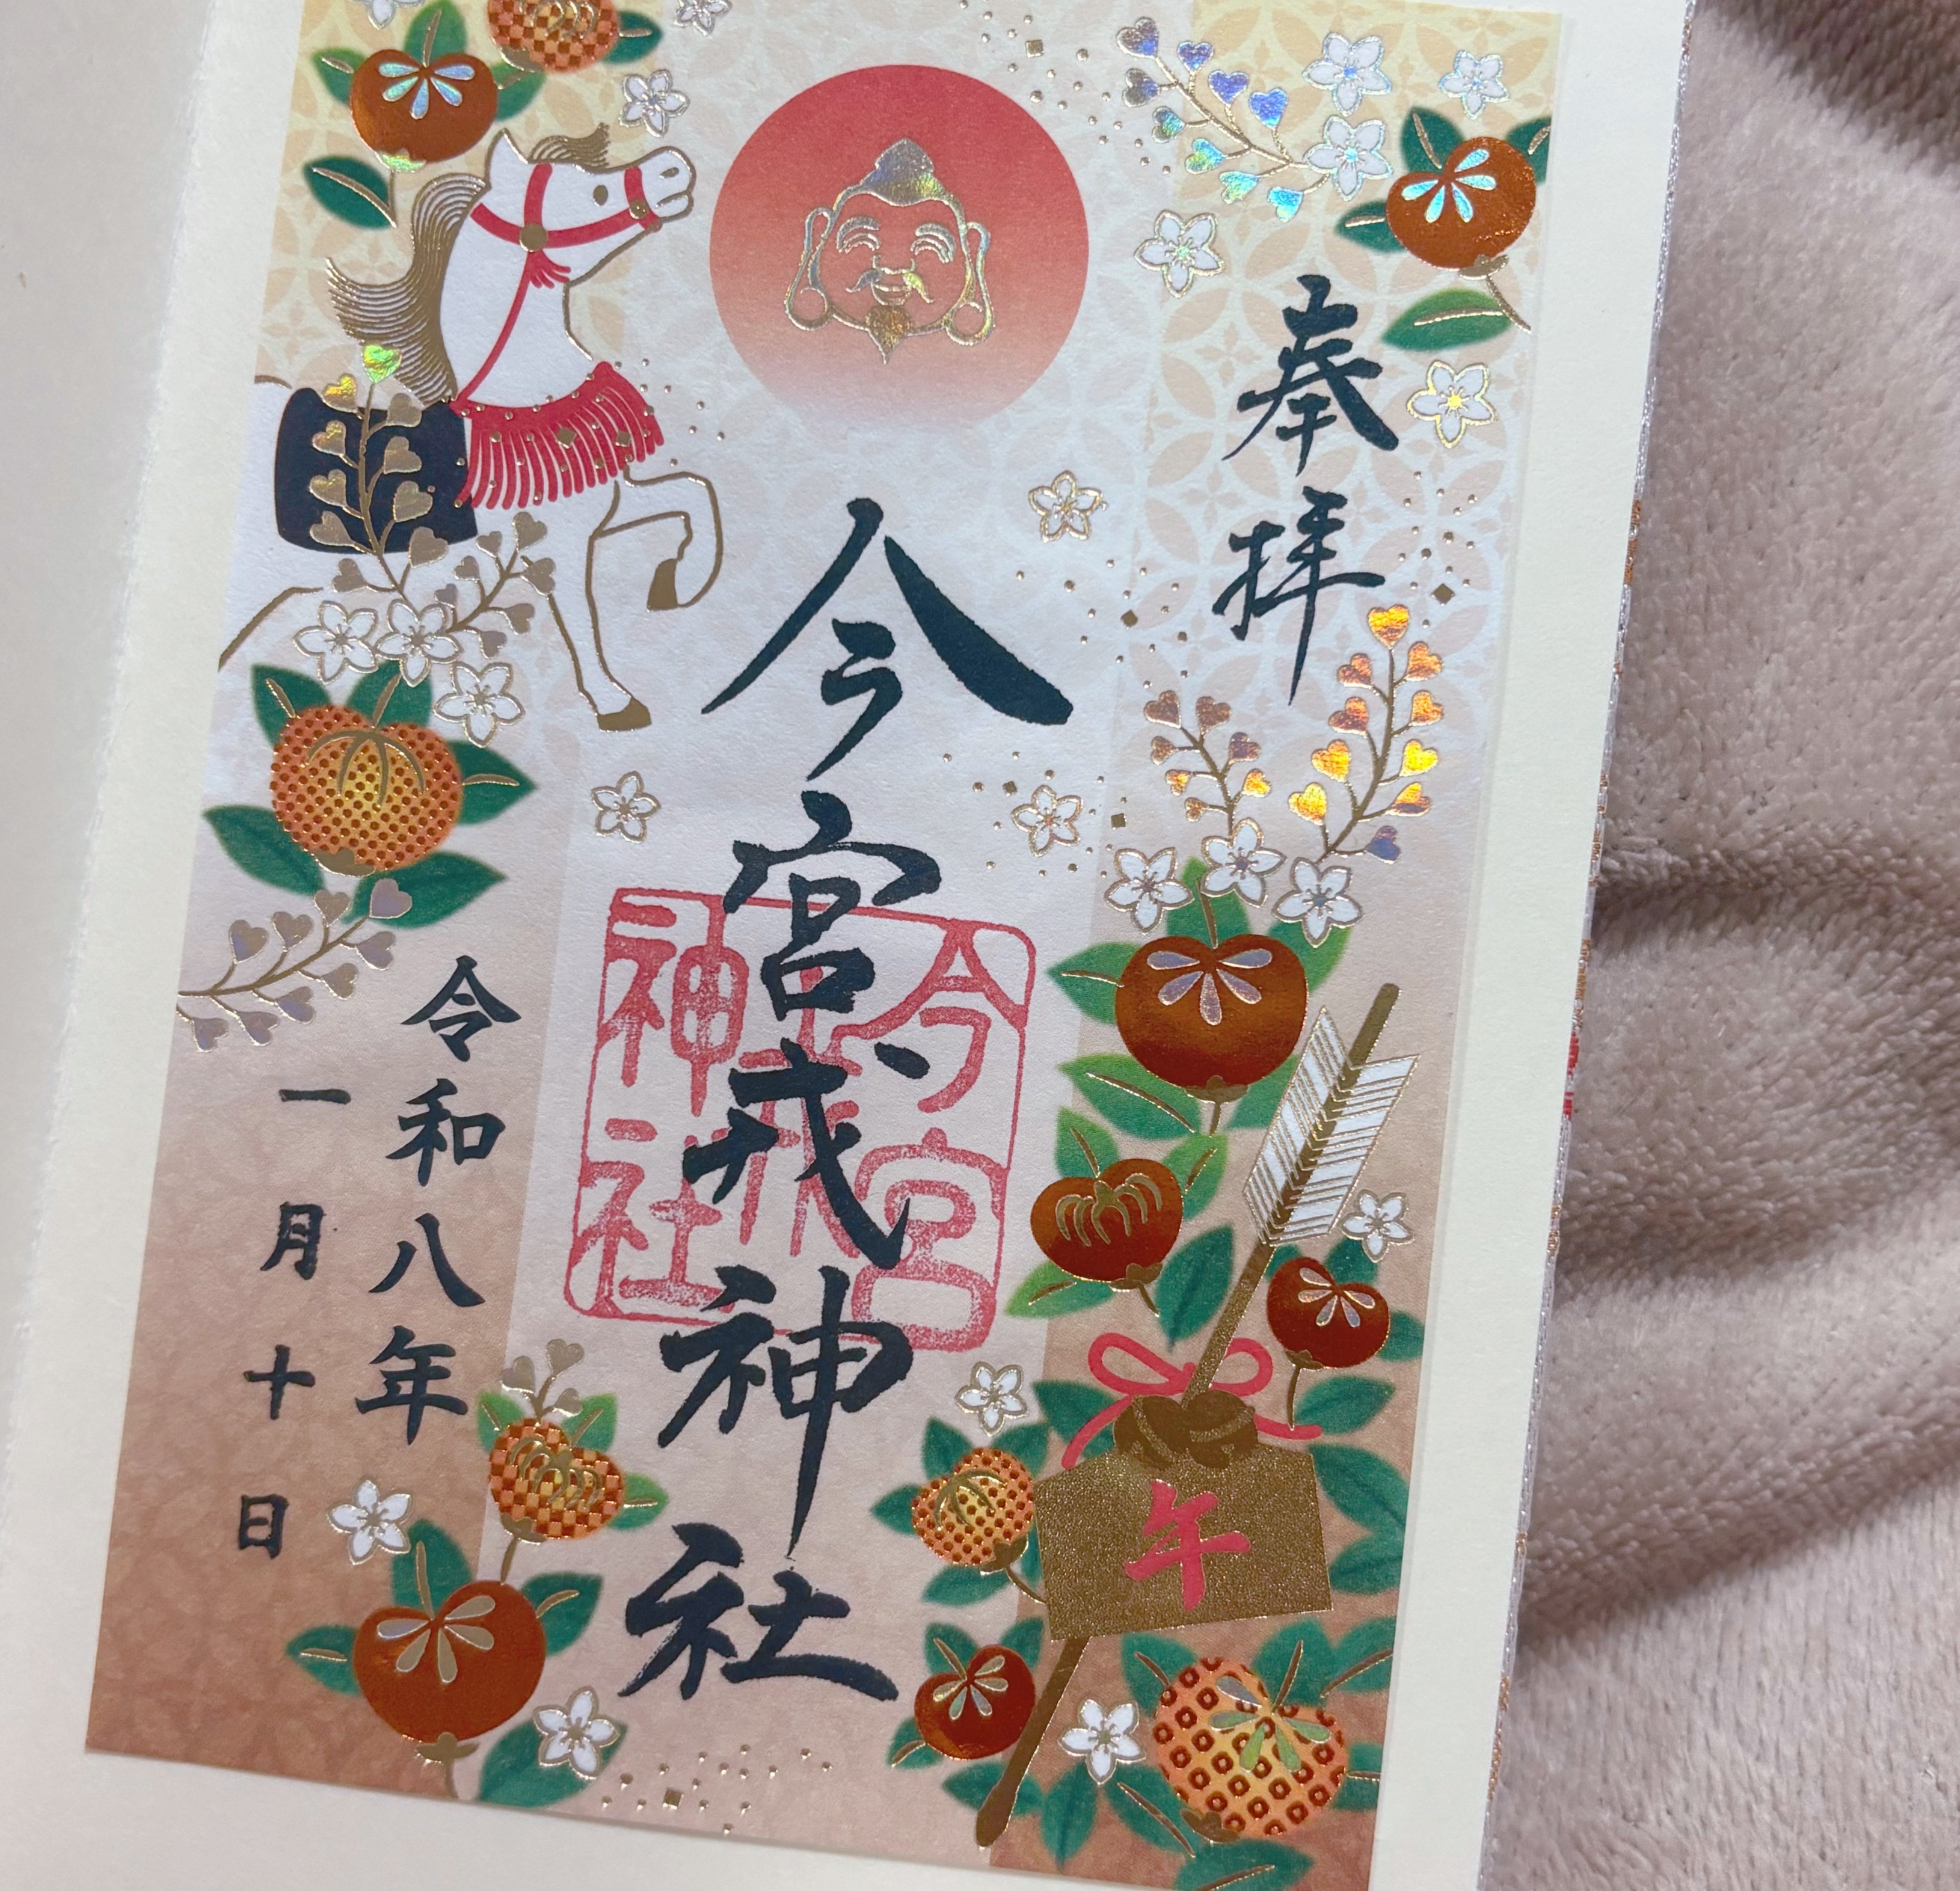 奉拝
今宮戎神社
今宮戎神社
令和八年
一月十日
午